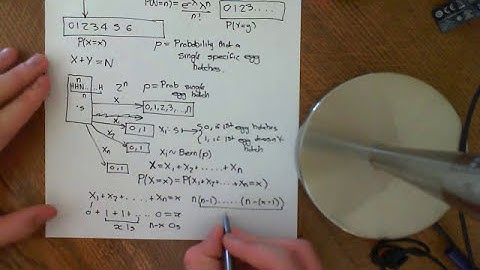 P(N=n) = e^-λ λ^n / n!
0123....
P(Y=y)
0123456
P(X=x)
X+Y=N
p = Probability that a
single specific egg
hatches.
n
HHH....H 2^n
p = Prob single
egg hatch
n
S
X
0,1,2,3,..,n
X₁
0,1
X₁: S→ 0, if 1st egg hatches
1, if 1st egg doesn't
hatch
0,1
X₁~Bern(p)
Xn
0,1
X=X₁+X₂+....+Xn
P(X=x) = P(X₁+X₂+...+Xn=x)
X₁+X₂+.....+Xn=x
n(n-1)......(n-(x-1))
0+1+1+...0=x
x 1s
n-x 0s